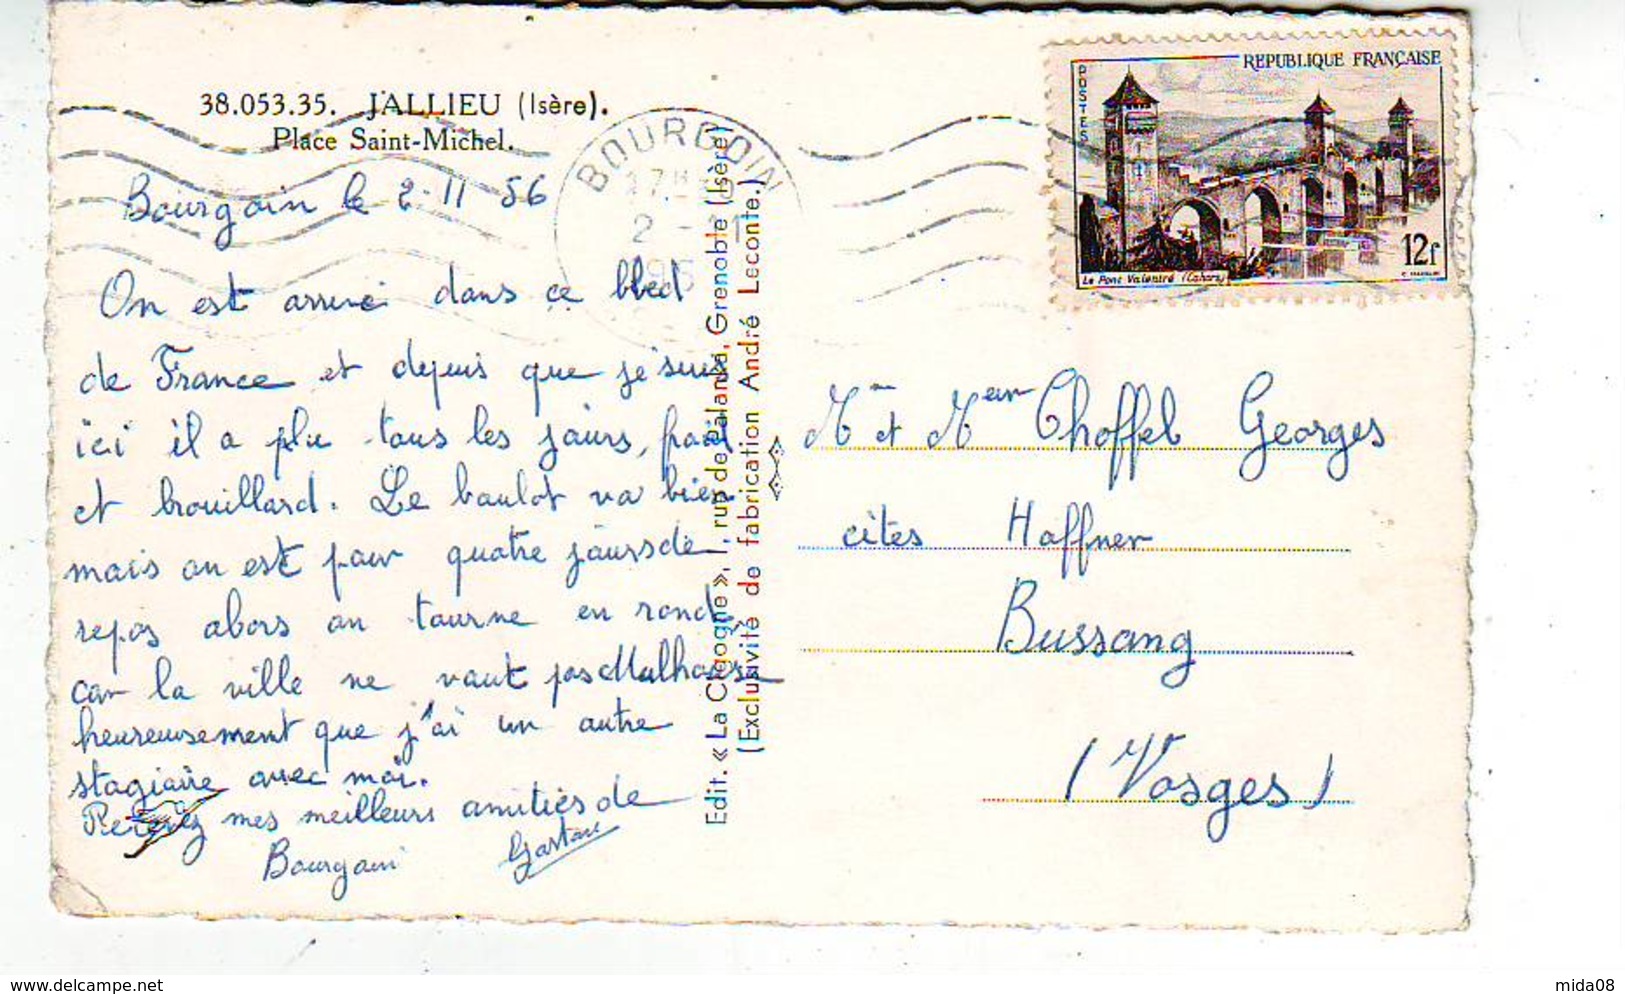 38.053.35. JALLIEU (Isère).
Place Saint-Michel.
Bourgoin le 2-11 56
On est arrivé dans ce bled
de France et depuis que je suis
ici il a plu tous les jours, froid
et brouillard. Le boulot va bien
mais on est pour quatre jours de
repos alors on tourne en rond
car la ville ne vaut pas Mulhouse
heureusement que j'ai un autre
stagiaire avec moi.
Recevez mes meilleurs amitiés de
Bourgoin
BOURGOIN
2 - 11
Edit. « La Cigogne », 1, rue de Palanka, Grenoble (Isère)
(Exclusivité de fabrication André Leconte.)
REPUBLIQUE FRANÇAISE
POSTES
12f
Le Pont Valentré (Cahors)
Mme et Mr Choffel Georges
cités Haffner
Bussang
(Vosges)
mida08
www.delcampe.net